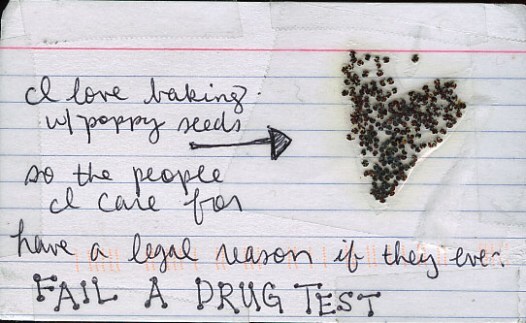 I love baking
w/ poppy seeds
so the people
I care for
have a legal reason if they ever
FAIL A DRUG TEST